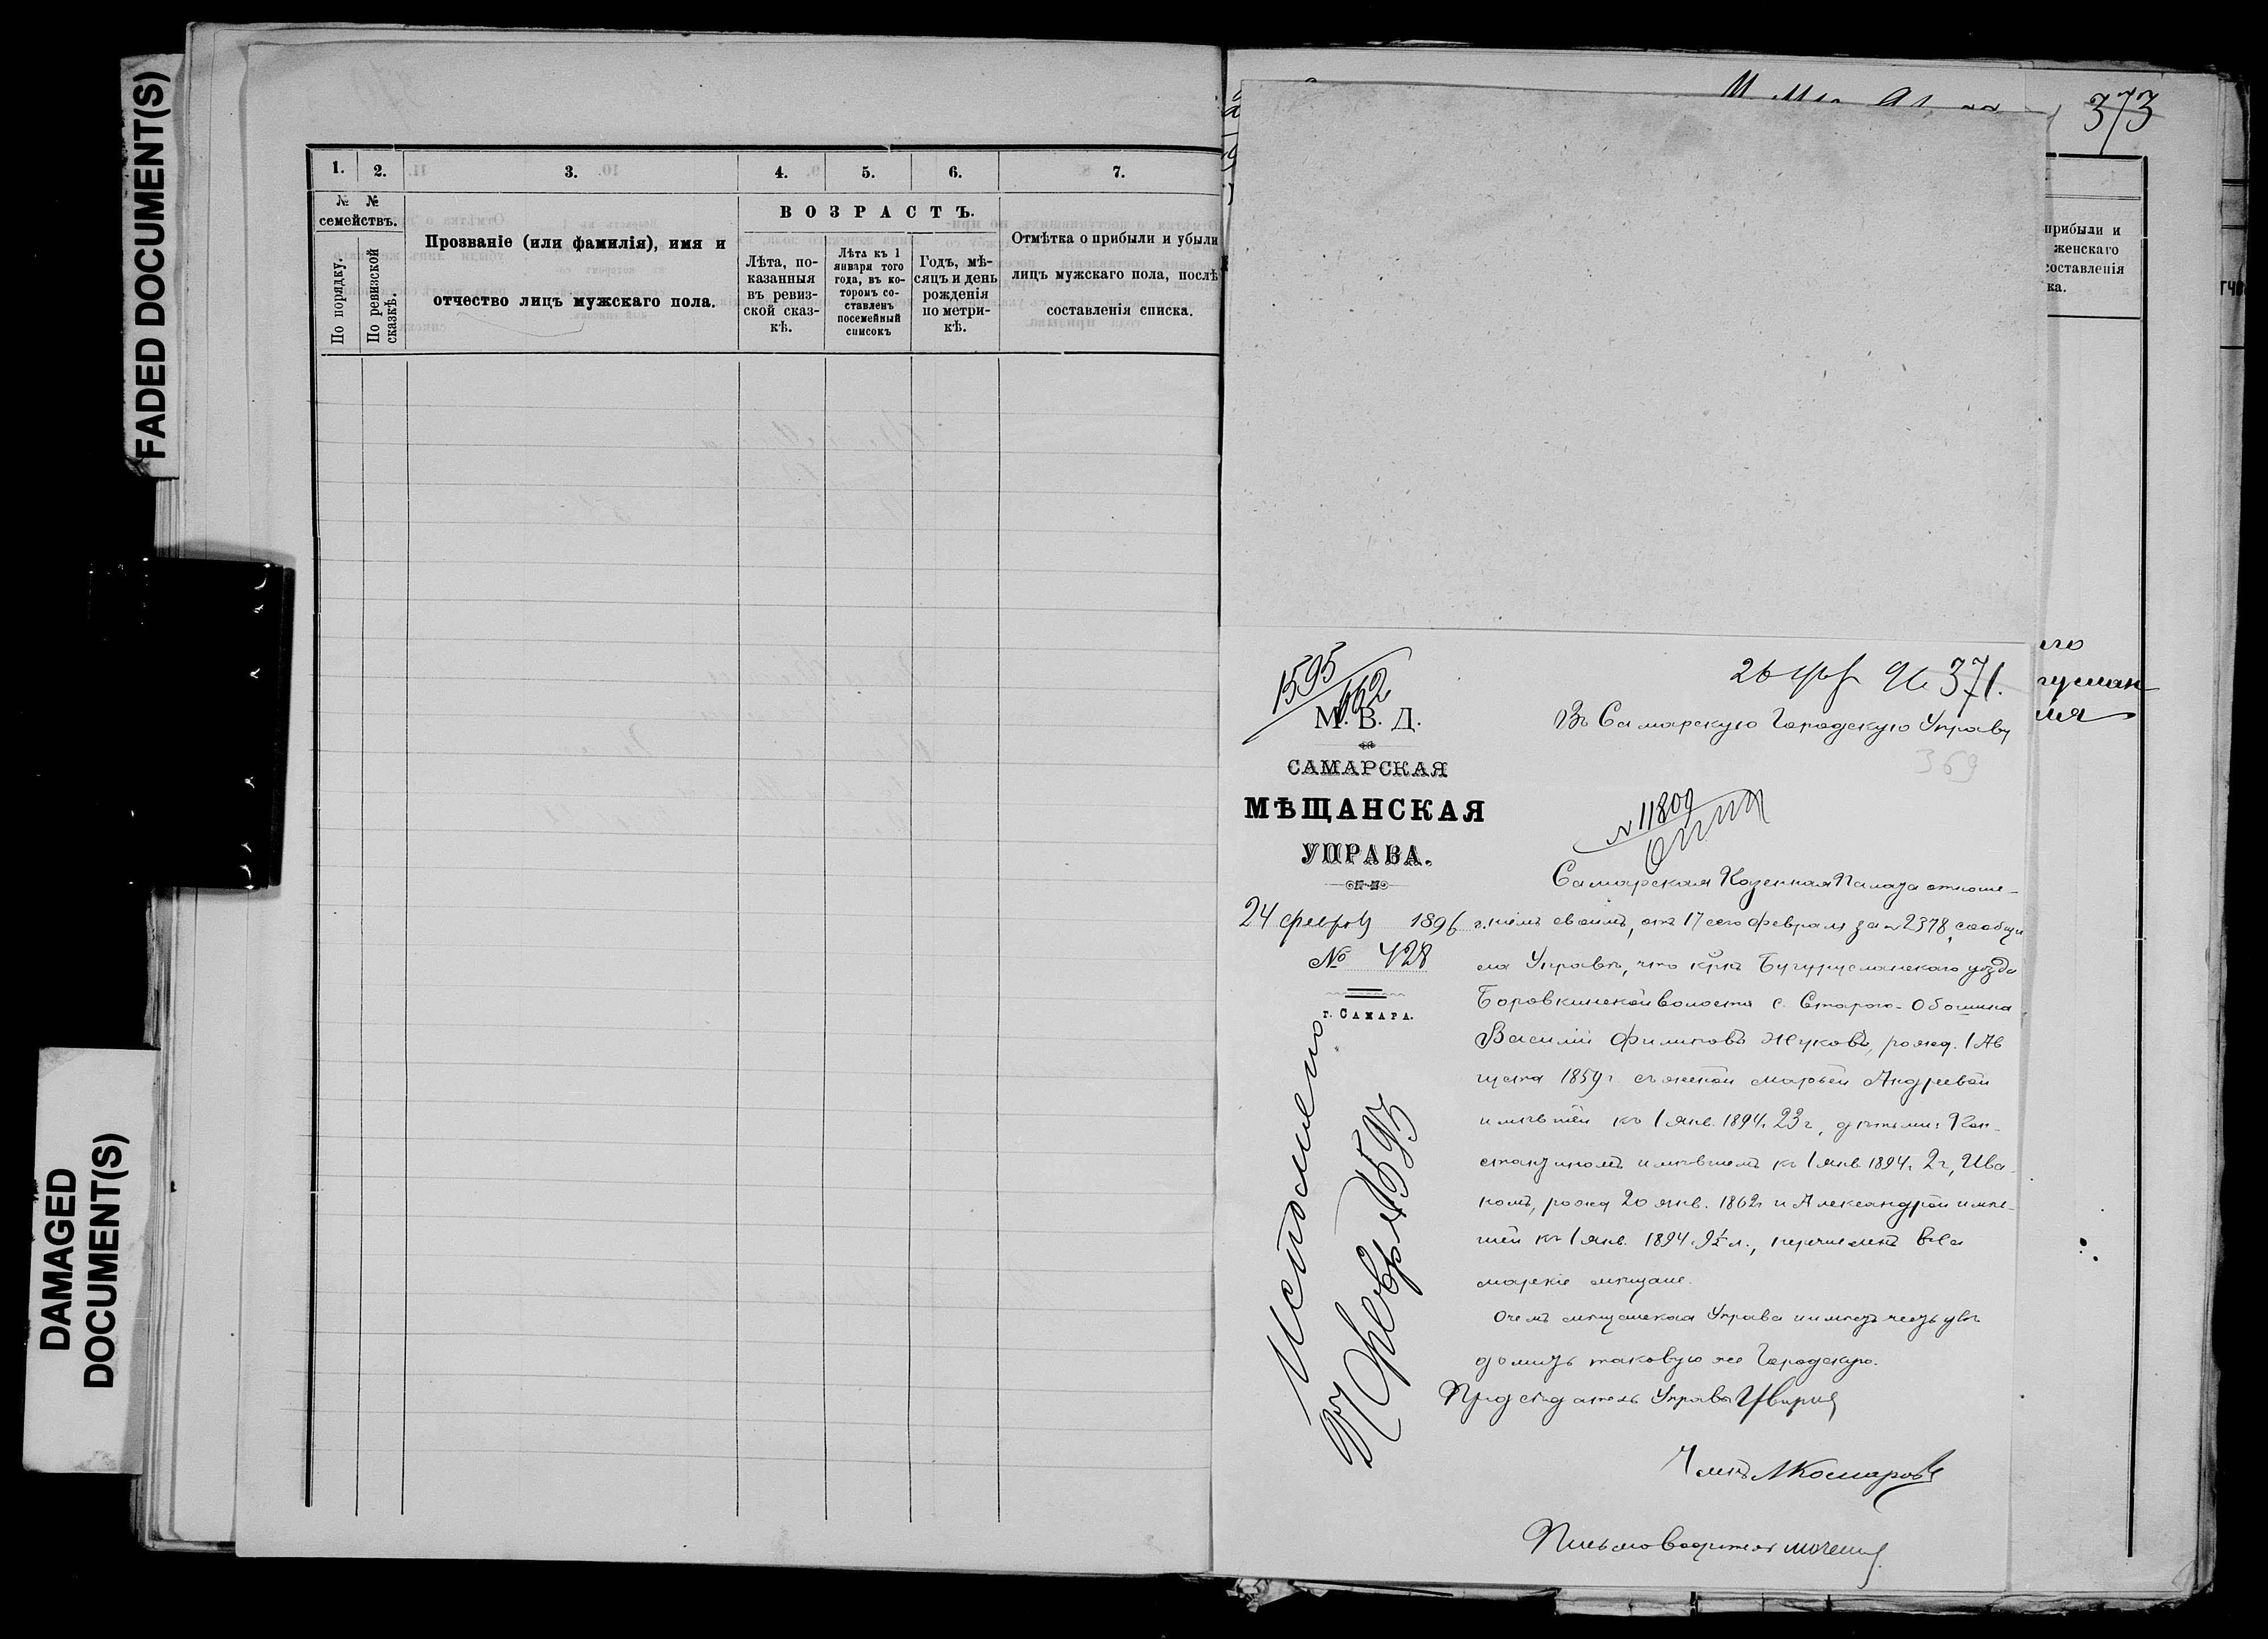 FADED DOCUMENT(S)
DAMAGED
DOCUMENT(S)
1. 2. 3. 4. 5. 6. 7.
№ № семействъ.
По порядку.
По ревизской сказкѣ.
Прозваніе (или фамилія), имя и
отчество лицъ мужскаго пола.
ВОЗРАСТЪ.
Лѣта, по-
казанныя
въ ревиз-
ской сказ-
кѣ.
Лѣта къ 1
января того
года, въ ко-
торомъ со-
ставленъ
посемейный
списокъ
Годъ, мѣ-
сяцъ и день
рожденія
по метри-
кѣ.
Отмѣтка о прибыли и убыли
лицъ мужскаго пола, послѣ
составленія списка.
373
прибыли и
женскаго
составленія
ка.
1595
662
М. В. Д.
САМАРСКАЯ
МѢЩАНСКАЯ
УПРАВА.
24 феврля 1896 г.
№ 428
г. САМАРА.
Исполнено
27 Февраля 1595
371.
Въ Самарскую Городскую Управу
369
№ 11809
Самарская Казенная Палата отноше-
ніемъ своимъ, отъ 17 сего февраля за № 2378, сообщи
ла Управѣ, что кр̃нъ Бугурусланскаго уѣзда
Боровкинской волости с. Старого-Обошина
Василій Филиповъ Жуковъ, рожд. 1 Ав
густа 1859 г. съ женой Марьей Андреевой
имѣвшей къ 1 янв. 1894 г. 23 г., дѣтьми: Кон-
стантиномъ имѣвшемъ къ 1 янв. 1894 г. 2 г., Ива-
номъ, рожд 20 янв. 1862 г и Александрой имѣв-
шей къ 1 янв. 1894 г. 9½ л., перечисленъ въ Са
марскіе мѣщане.
О чемъ мѣщанская Управа и имѣетъ честь увѣ
домить таковую же Городскую.
Предсѣдатель Управы
Членъ Комаровъ
Письмоводитель